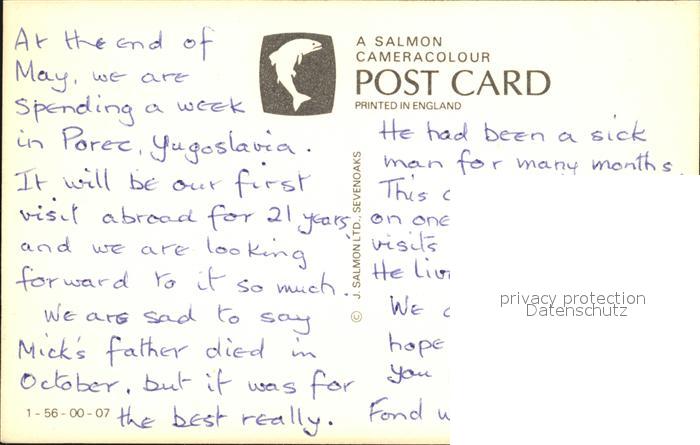 At the end of
May, we are
spending a week
in Porec, Yugoslavia.
It will be our first
visit abroad for 21 years
and we are looking
forward to it so much.
We are sad to say
Mick's father died in
October, but it was for
1-56-00-07 the best really.
© J. SALMON LTD., SEVENOAKS
A SALMON
CAMERACOLOUR
POST CARD
PRINTED IN ENGLAND
He had been a sick
man for many months.
This
on one
visits
He
We
hope
you
Fond
privacy protection
Datenschutz